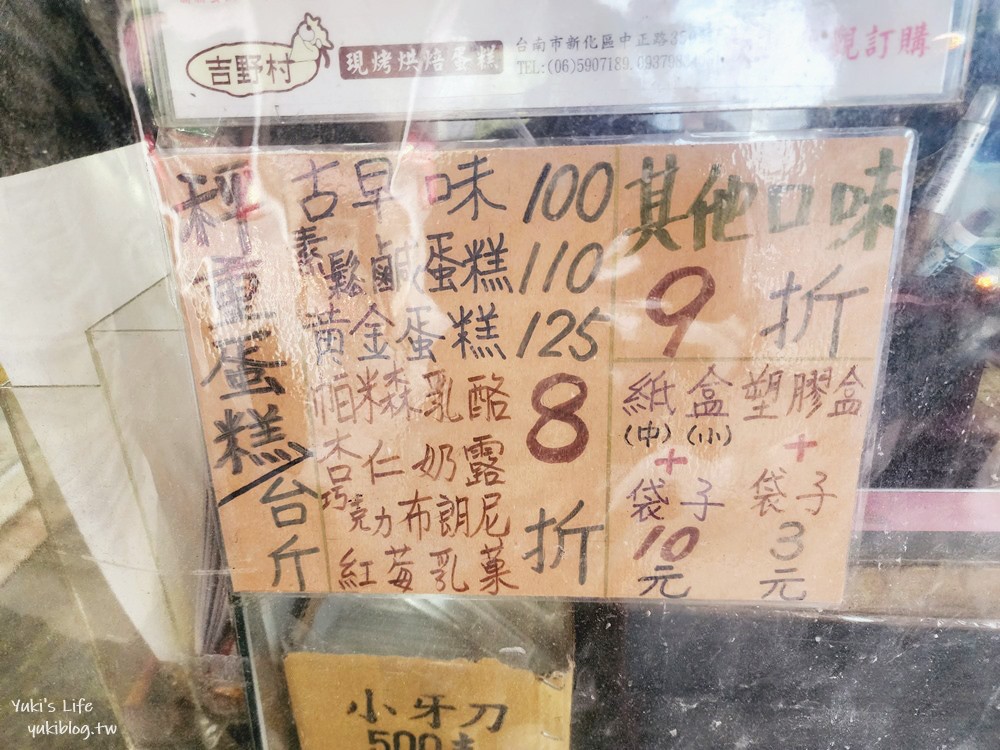 吉野村
現烤烘焙蛋糕
台南市新化區中正路35
TEL:(06)5907189.093798
訂購
秤重蛋糕/台斤
古早味 100
素鬆鹹蛋糕 110
黃金蛋糕 125
帕米森乳酪
杏仁奶露
巧克力布朗尼
紅莓乳菓
8折
其他口味
9折
紙盒
(中)(小)
+
袋子
10
元
塑膠盒
+
袋子
3
元
小牙刀
500
Yuki's Life
yukiblog.tw